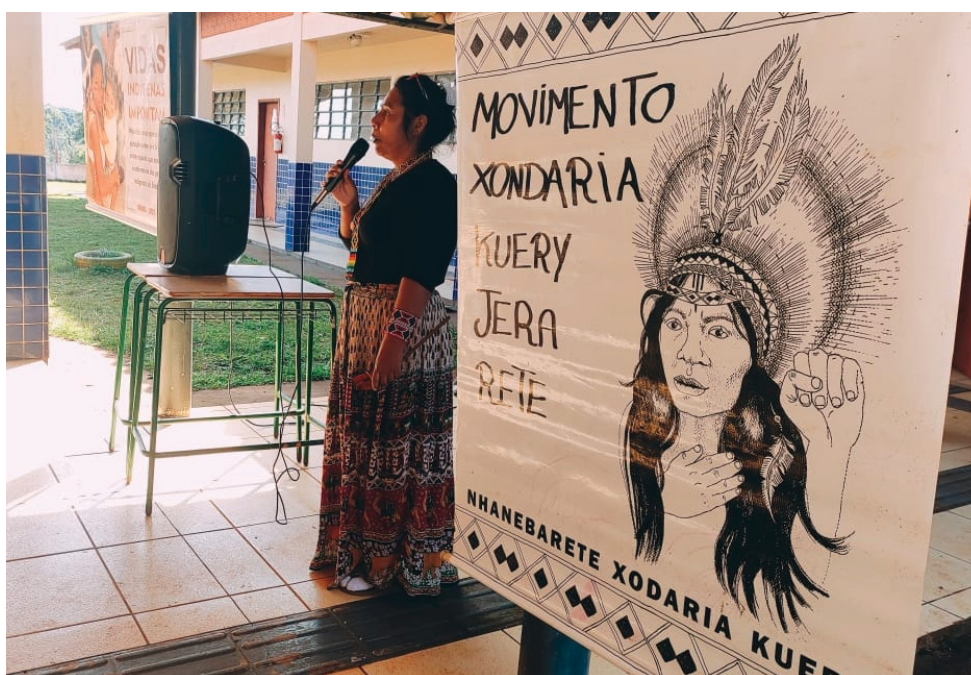 VIDAS
INDÍGENAS
IMPORTAM
MOVIMENTO
XONDARIA
KUERY
JERA
RETE
NHANEBARETE XODARIA KUER